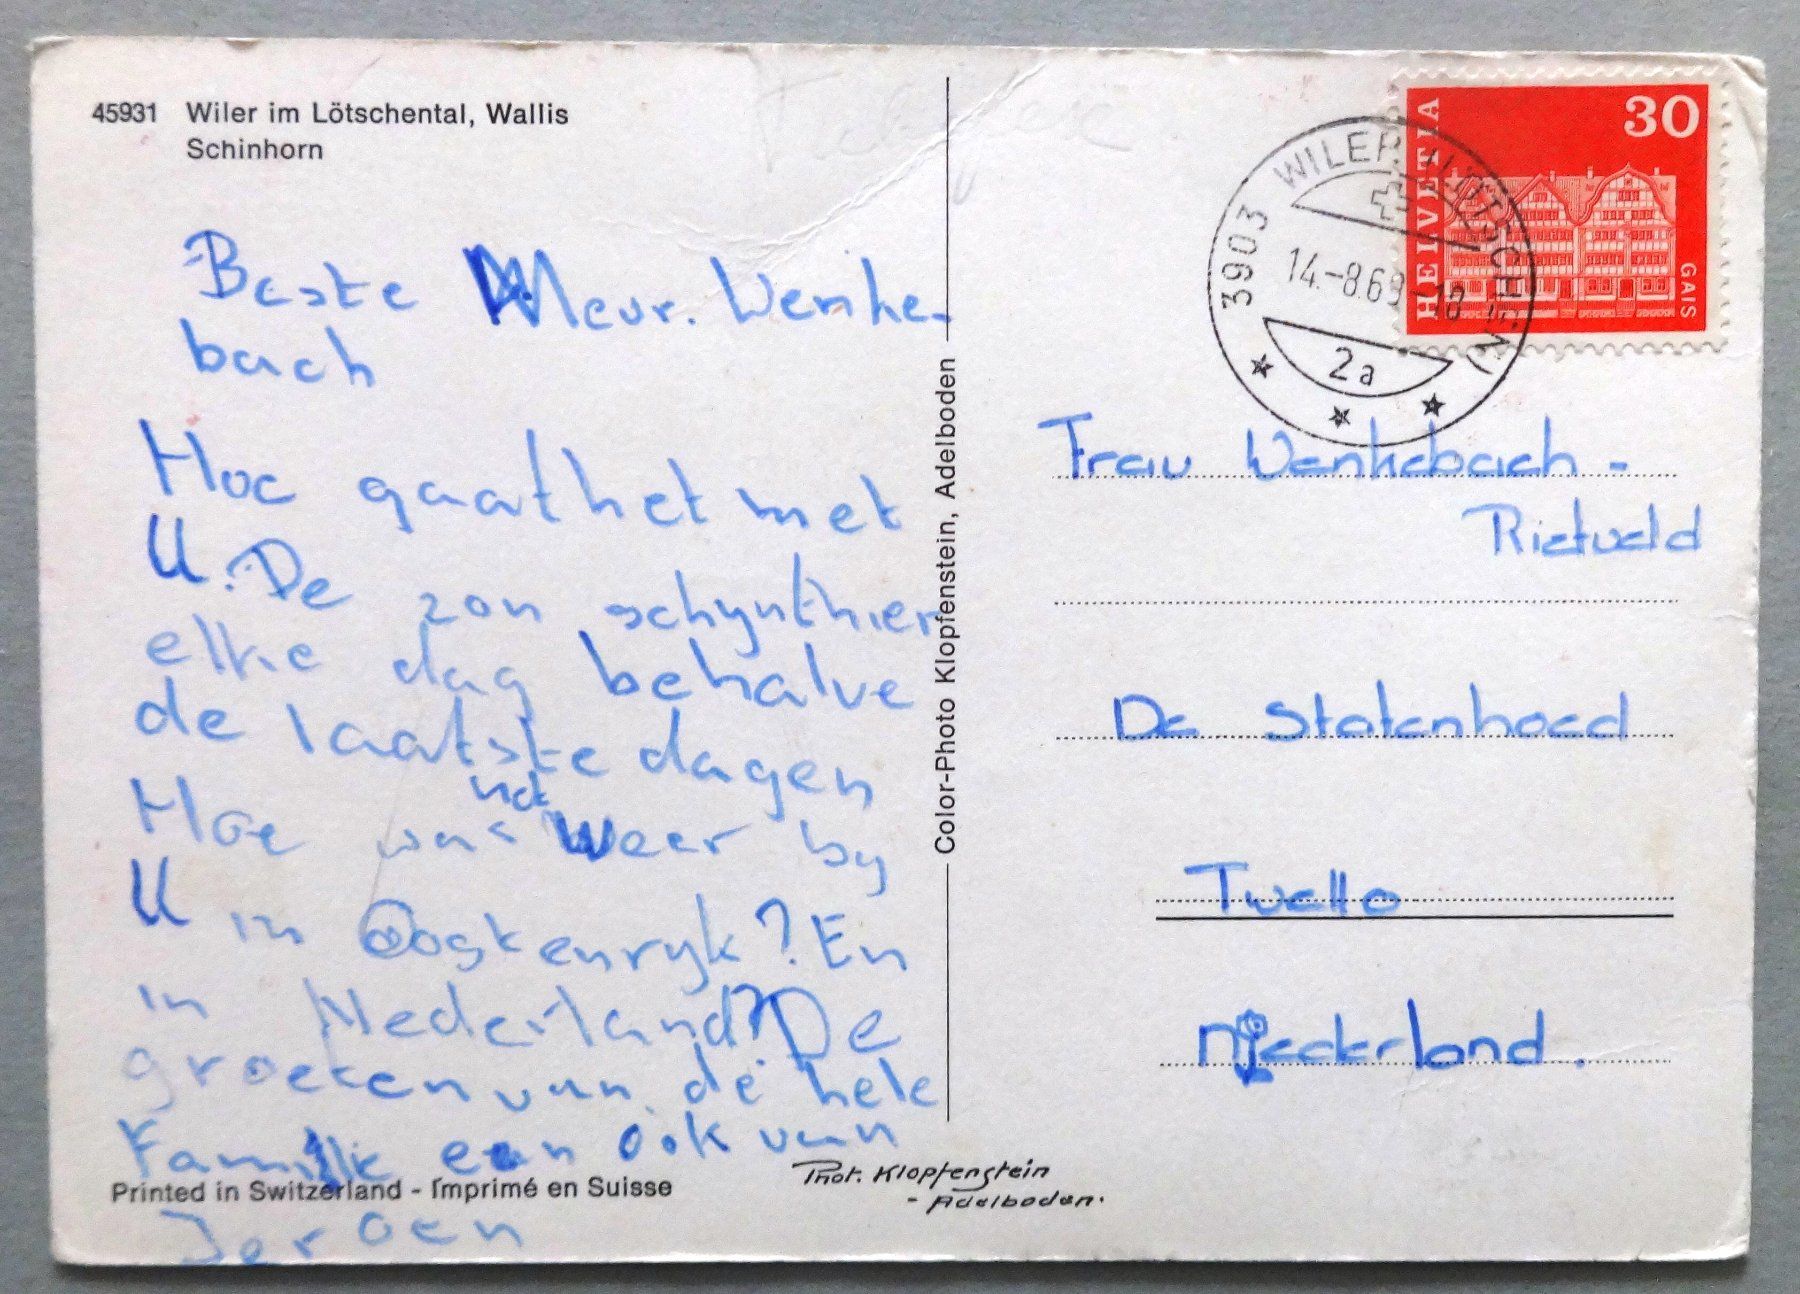 45931 Wiler im Lötschental, Wallis
Schinhorn
Beste Mevr. Wenke-
bach
Hoe gaat het met
U. De zon schynt hier
elke dag behalve
de laatste dagen
Hoe was het weer by
U in Oostenryk? En
in Nederland? De
groeten van de hele
Familie en ook van
Jeroen
Printed in Switzerland - Imprimé en Suisse
Color-Photo Klopfenstein, Adelboden
Phot. Klopfenstein
- Adelboden.
HELVETIA
30
GAIS
3903 WILER (LÖTSCHEN)
14.-8.69-18
2a
Frau Wenkebach -
Rietveld
De Statenhoed
Twello
Niederland.